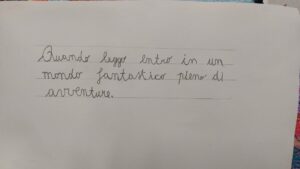 Quando leggo entro in un
mondo fantastico pieno di
avventure.